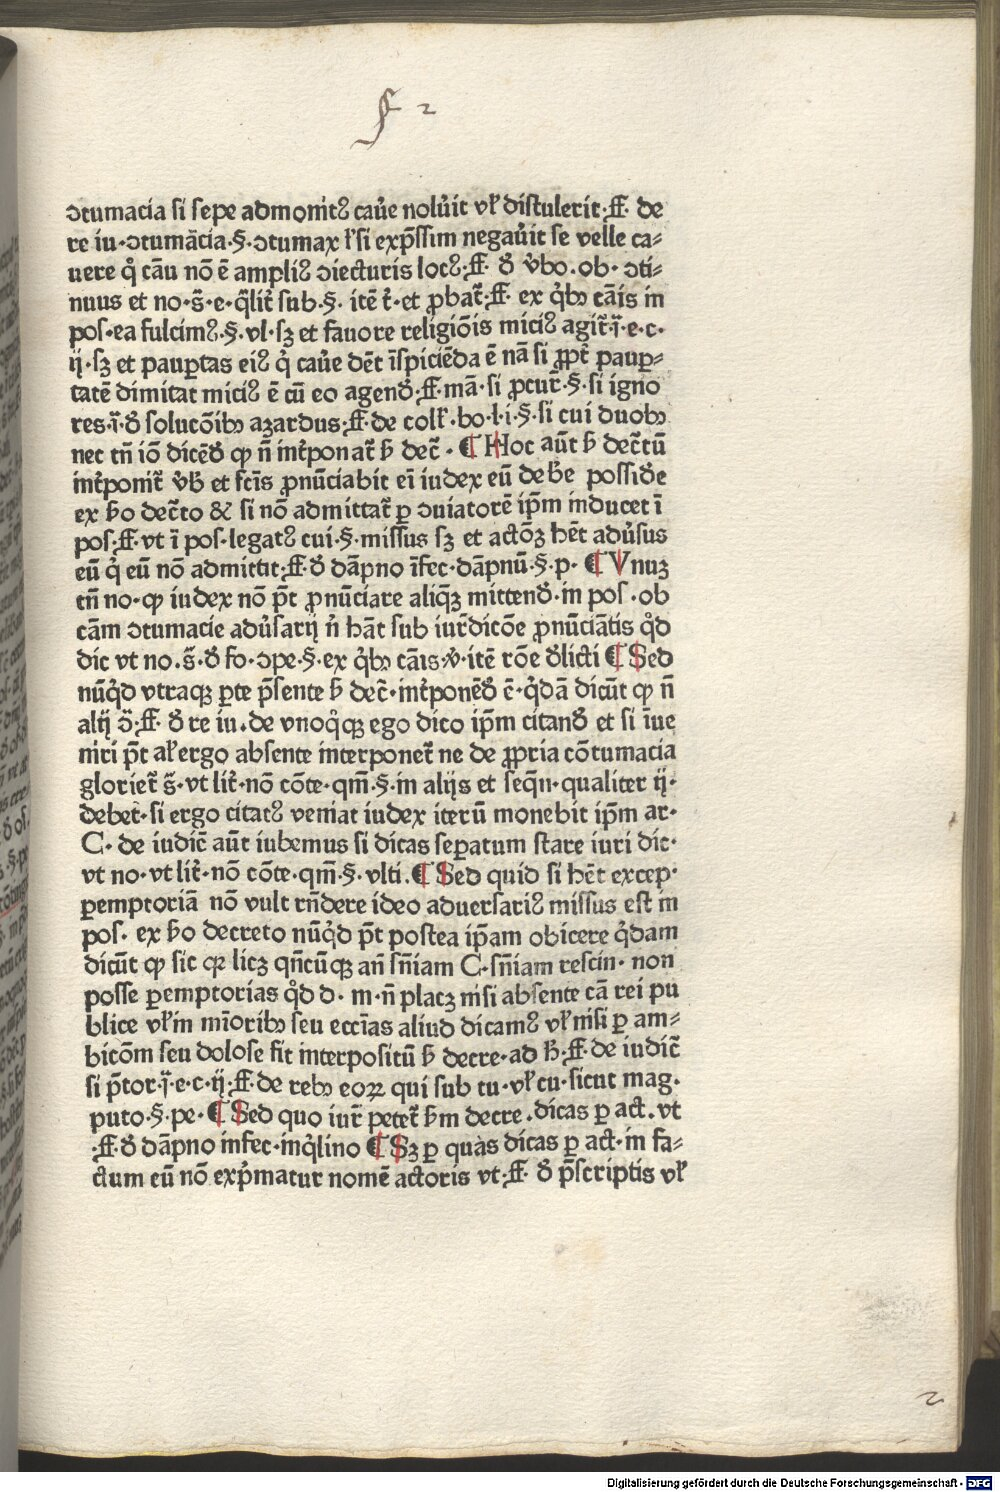 ↄtumacia si sepe admonit9 cauẻ noluit vł distulerit·ff· de
re iu·ↄtumãcia·§·ↄtumax łsi exp̃ssim negauit se velle ca⸗
uere q̊ cãu nõ ẽ ampli9 ↄiecturis loc9·ff· đ v̉bo.ob·ↄti⸗
nuus et no·s̃·e·q̃lit̃ sub·§· itẽ t̃·et ꝓbat̃·ff· ex q̉bꝫ cãis in
pos·ea fulcim9·§·vl·sꝫ et fauore religiõis mici9 agit̃·ĩ·e·c·
ij·sꝫ et pauꝑtas ei9 q̉ cauẻ dẽt ĩspiciẽda ẽ nã si ꝓpt̃ pauꝑ⸗
tatẽ dimitat mici9 ẽ cũ eo agenđ·ff·mã·si ꝓcur̃·§·si igno
res·ĩ·đ solucõibꝫ azardus·ff·de colł·bo·l·i·§·si cui duobꝫ
nec tñ iõ dicẽđ ꝙ ñ int̉ponat̃ ħ dec̃· ¶ Hoc aũt ħ dec̃tũ
int̉ponit̃ v̉ħ et sc̃is ꝓnũciabit ei iudex eũ debẻ possiđe
ex ħo dec̃to & si nõ admittat̃ ꝑ ↄuiatorẽ ip̃m inducet ĩ
pos·ff·vt ĩ pos·legat9 cui·§·missus sꝫ et actõꝫ hẽt adủsus
eũ q̉ eũ nõ admittit·ff·đ dãpno ĩfec·dãpnũ·§·p· ¶ Vnuꝫ
tñ no·ꝙ iudex nõ p̃t ꝓnũciare aliq̃ꝫ mittenđ·in pos·ob
cãm ↄtumacie adủsarij ñ hãt sub iur̃dicõe ꝓnũciãtis q̊d
dic vt no.s̃·đ fo·ↄpe·§·ex q̉bꝫ cãis·v̉·itẽ rõe đlicti ¶ Sed
nũq̉d vtraqꝫ ꝑte p̃sente ħ dec̃·int̉ponẽđ ẽ·q̉dã dicũt ꝙ ñ
alij ↄ̃·ff· đ re iu.de vnoq̊qꝫ ego dico ip̃m citanđ et si ĩue
niri p̃t ał ergo absente interponet̃ ne de ꝓpria cõtumacia
gloriet̃ s̃·vt lit̃·nõ cõte·qm̃·§·in alijs et seq̃n·qualiter ij·
debet·si ergo citat9 veniat iudex iterũ monebit ip̃m ar·
C·de iudic̃ aũt iubemus si dicas seꝑatum stare iuri dic·
vt no·vt lit̃·nõ cõte·qm̃·§·vlti.¶ Sed quid si hẽt excep·
ꝑemptoriã nõ vult rñdere ideo aduersari9 missus est in
pos· ex ħo decreto nũq̉d p̃t postea ip̃am obicere q̉dam
dicũt ꝙ sic qꝛ licꝫ qñcũqꝫ añ sñiam C·sñiam rescin·non
posse ꝑemptorias q̊d d·m·ñ placꝫ nisi absente cã rei pu
blice vł in mĩoribꝫ seu ecc̃ias aliud dicam9 vł nisi ꝑ am⸗
bicõm seu dolose fit interpositũ ħ decre·ad ħ·ff·de iudic̃
si p̃tor·ĩ·e·c·ij·ff·de rebꝫ eoꝝ qui sub tu·vł cu·sicut mag·
puto·§·pe·¶ Sed quo iur̃ petet̃ ħm decre.dicas ꝑ act.vt
·ff·đ dãpno infec·inq̉lino ¶ Sꝫ ꝑ quàs dicas ꝑ act·in fa⸗
ctum eũ nõ exp̉matur nomẽ actoris vt·ff· đ p̃scriptis vł
2
Digitalisierung gefördert durch die Deutsche Forschungsgemeinschaft - DFG